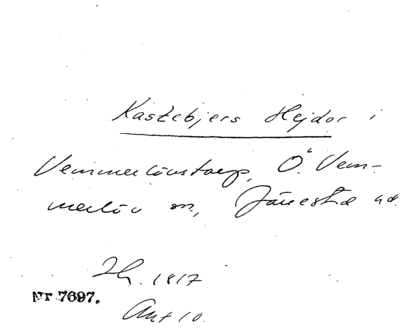 Kastebjers Hejdor i
Vemmerlövstorp, Ö. Vem-
merlöv sn, Järrestads hd.
Lh. 1817
Nr 7697.
Akt 10.